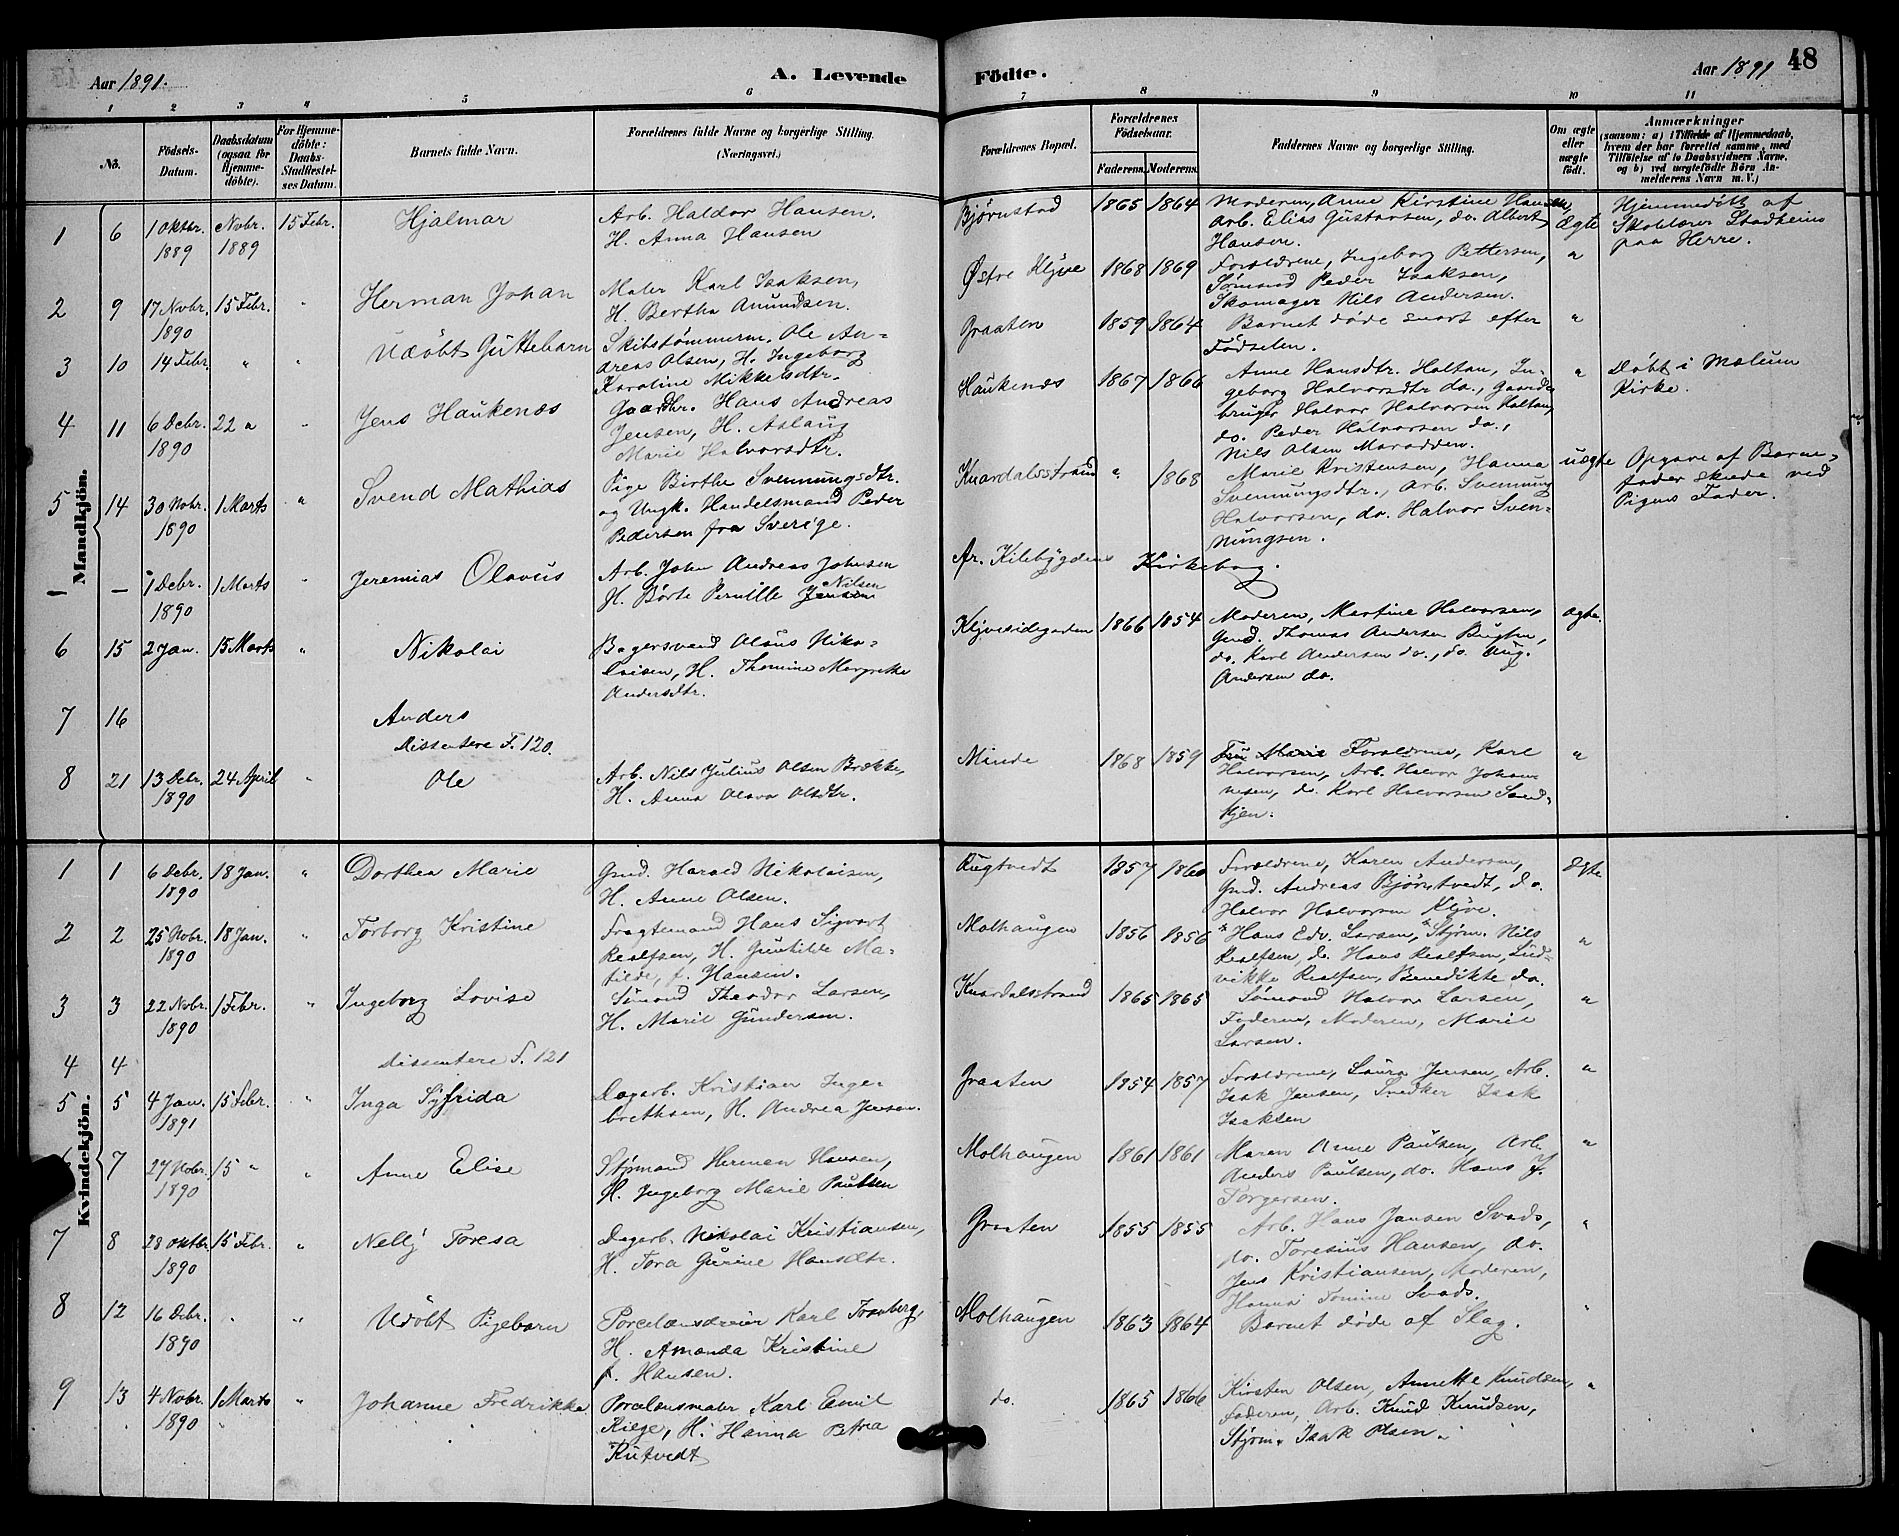 Aar 1891.
A. Levende
Födte.
Aar 1891
48
1 2 3 4 5 6 7 8 9 10 11
No.
Födsels-
Datum.
Daabsdatum
(ogsaa for
Hjemme-
döbte).
For Hjemme-
döbte:
Daabs-
Stadfæstel-
ses Datum.
Barnets fulde Navn.
Forældrenes fulde Navne og borgerlige Stilling.
(Næringsvei.)
Forældrenes Bopæl.
Forældrenes
Födselsaar.
Faderens. Moderens.
Faddernes Navne og borgerlige Stilling.
Om ægte
eller
uægte
födt.
Anmærkninger
(saasom: a) i Tilfælde af Hjemmedaab,
hvem der har forrettet samme, med
Tilföielse af to Daabsvidners Navne,
og b) ved uægtefödte Börn An-
melderens Navn m.V.)
Mandkjön.
1 6 1 Oktbr. 1889 Novbr. 1889 15 Febr. Hjalmar
Arb. Haldor Hansen.
H. Anna Hansen
Bjørnstad 1865 1864
Moderen, Anne Kirstine Hansen,
Arb. Elias Gustavsen, do. Albert
Hansen.
Ægte
Hjemmedöbt af
Skolelærer Stadheim
paa Herre.
2 9 17 Novbr. 1890 15 Febr. " Herman Johan
Maler Karl Isaksen,
H. Berthe Amundsen.
Østre Klyve 1868 1869
Forældrene, Ingeborg Pettersen,
Sømand Peder Isaksen,
Skomager Nils Andersen.
"
3 10 14 Febr. " " Udöbt Guttebarn
Skibstømmerm. Ole An-
dreas Olsen, H. Ingeborg
Karoline Mikkelsdtr.
Graaten 1859 1864
Barnet døde snart efter
Födselen.
"
4 11 6 Debr. 1890 22 " " Jens Haukenæs
Gaardbr. Hans Andreas
Jensen, H. Aslaug
Marie Halvorsdtr.
Haukenæs 1867 1866
Anne Hansdtr. Holtan, In-
geborg Halvorsdtr do., Gaard-
bruger Halvor Halvorsen Holtan,
do. Peder Halvorsen do.,
Nils Olsen
"
Døbt i Mælum
Kirke.
5 14 30 Novbr. 1890 1 Marts " Svend Mathias
Pige Birthe Svennungsdtr.
og Ungk. Handelsmand Peder
Pedersen fra Sverige.
Knardalsstrand " 1868
Marie Kristensen, Hanna
Svennungsdtr., Arb. Svennung
Halvorsen, do. Halvor Sven-
nungsen.
uægte
Opgave af Barne-
fader skede ved
Pigens Fader.
- - 1 Debr. 1890 1 Marts " Jeremias Olavus
Arb. John Andreas Johnsen
H. Børte Pernille Jensen Nilsen
Fr. Kilebygdens Kirkebog.
6 15 2 Jan. 15 Marts " Nikolai
Bagersvend Olaus Niko-
laisen, H. Thomine Margrethe
Andersdtr.
Klyvesidegarden 1866 1854
Moderen, Martine Halvorsen,
Gmd. Thomas Andersen
do. Karl Andersen do., do. Aug.
Andersen do.
Ægte.
7 16 Anders
Dissentere F. 120.
8 21 13 Debr. 1890 24 April " Ole
Arb. Nils Julius Olsen Brække,
H. Anna Olava Olsdtr.
Minde 1868 1859
Forældrene, Karl
Halvorsen, Arb. Halvor Johan-
nesen, do. Karl Halvorsen Sand-
kjen.
"
Kvindekjön.
1 1 6 Debr. 1890 18 Jan. " Dorthea Marie
Gmd. Harald Nikolaisen,
H. Anne Olsen.
Rugtvedt 1857 1860
Forældrene, Karen Andersen,
Gmd. Andreas Bjørntvedt, do.
Halvor Halvorsen Klyve.
Ægte
2 2 25 Novbr. 1890 18 Jan. " Torborg Kristine
Fragtemand Hans Sigvart
Realfsen, H. Gunhilde Ma-
tilde, f. Hansen.
Molhaugen 1856 1856
Hans Edv. Larsen, Styrm. Nils
Realfsen, do. Hans Realfsen, Lud-
vikke Realfsen, Benedikte do.
"
3 3 22 Novbr. 1890 1 Febr. " Ingeborg Lovise
Sømand Theodor Larsen,
H. Marie Gundersen.
Knardalsstrand 1865 1865
Sømand Halvor Larsen,
Faderen, Moderen, Marie
Larsen.
"
4 4 Dissentere F. 121
5 5 4 Jan. 1891 15 Febr. " Inga Syfrida
Dagarb. Kristian Inge-
brethsen, H. Andrea Jensen.
Graaten 1854 1857
Forældrene, Laura Jensen, Arb.
Isak Jensen, Snedker Isak
Isaksen
"
7 27 Novbr. 1890 15 " " Anne Elise
Styrmand Herman Hansen,
H. Ingeborg Marie Paulsen
Molhaugen 1861 1861
Maren Anne Paulsen, Arb.
Anders Paulsen, do. Hans J.
Torgersen.
"
7 8 28 Oktbr. 1890 15 Febr. " Nelly Toresa
Dagarb. Nikolai Kristiansen,
H. Tora Gurine Hansdtr.
Graaten 1855 1855
Arb. Hans Jansen Svads,
do. Toresius Hansen, do.
Jens Kristiansen, Moderen,
Hanna Tomine Svads.
"
8 12 16 Debr. 1890 " " Udöbt Pigebarn
Porcelænsdreier Karl Tornberg,
H. Amanda Kristine
f. Hansen.
Molhaugen 1863 1864
Barnet døde af Slag.
"
9 13 4 Novbr. 1890 1 Marts " Johanne Fredrikke
Porcelænsmaler Karl Emil
Riege, H. Hanna Petrea
Rutvedt
do. 1865 1866
Kirsten Olsen, Annette Knudsen,
Faderen, Arb. Knud Knudsen,
Styrm. Isak Olsen.
"